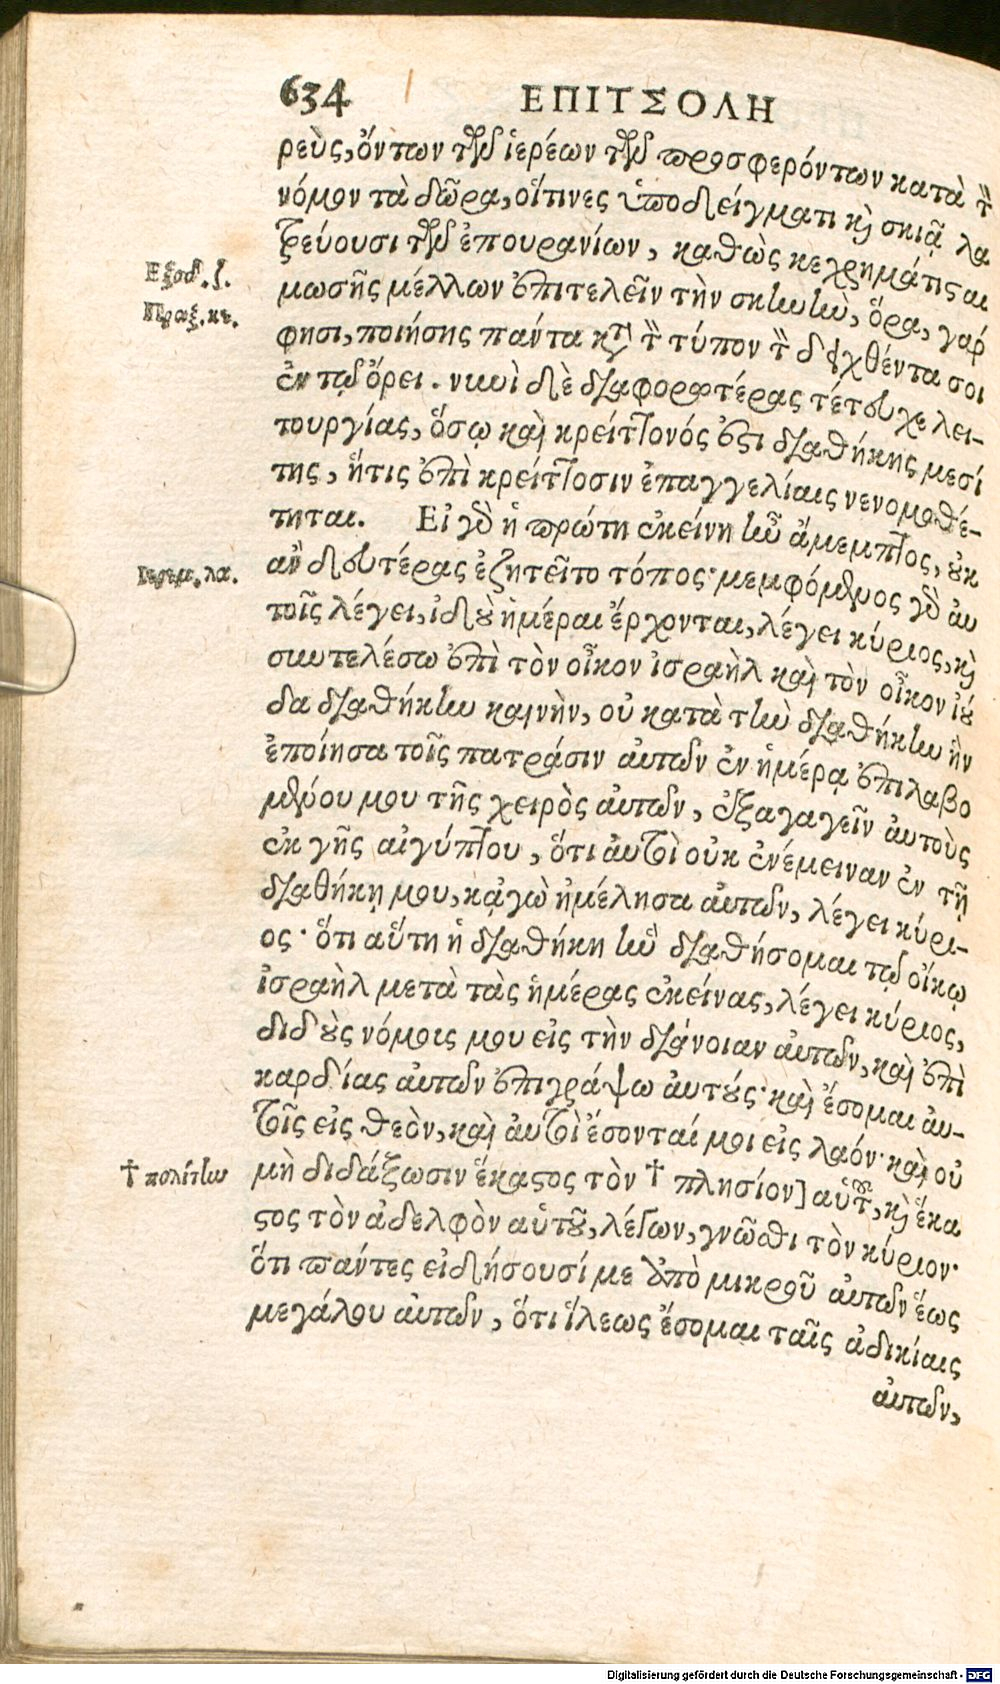 634 ΕΠΙΣΤΟΛΗ
ρεὺς, ὄντων τῶν ἱερέων τῶν προσφερόντων κατὰ τὸν
νόμον τὰ δῶρα, οἵτινες ὑποδείγματι καὶ σκιᾷ λα
τρεύουσι τῶν ἐπουρανίων, καθὼς κεχρημάτισται
Εξοδ.
μωσῆς μέλλων ἐπιτελεῖν τὴν σκηνὴν, ὅρα, γάρ
Πραξ. κε.
φησι, ποιήσῃς πάντα κατὰ τὸν τύπον τὸν δειχθέντα σοι
ἐν τῷ ὄρει. νυνὶ δὲ διαφορωτέρας τέτευχε λει-
τουργίας, ὅσῳ καὶ κρείττονός ἐστι διαθήκης μεσί
της, ἥτις ἐπὶ κρείττοσιν ἐπαγγελίαις νενομοθέ-
τηται. Εἰ γὰρ ἡ πρώτη ἐκείνη ἦν ἄμεμπτος, οὐκ
Ιερεμ. λα.
ἂν δευτέρας ἐζητεῖτο τόπος· μεμφόμενος γὰρ αὐ
τοῖς λέγει, ἰδοὺ ἡμέραι ἔρχονται, λέγει κύριος, καὶ
συντελέσω ἐπὶ τὸν οἶκον ἰσραὴλ καὶ τὸν οἶκον ἰού
δα διαθήκην καινὴν, οὐ κατὰ τὴν διαθήκην ἣν
ἐποίησα τοῖς πατράσιν αὐτῶν ἐν ἡμέρᾳ ἐπιλαβο
μένου μου τῆς χειρὸς αὐτῶν, ἐξαγαγεῖν αὐτοὺς
ἐκ γῆς αἰγύπτου, ὅτι αὐτοὶ οὐκ ἐνέμειναν ἐν τῇ
διαθήκῃ μου, κᾀγὼ ἠμέλησα αὐτῶν, λέγει κύρι-
ος· ὅτι αὕτη ἡ διαθήκη ἣν διαθήσομαι τῷ οἴκῳ
ἰσραὴλ μετὰ τὰς ἡμέρας ἐκείνας, λέγει κύριος,
διδοὺς νόμους μου εἰς τὴν διάνοιαν αὐτῶν, καὶ ἐπὶ
καρδίας αὐτῶν ἐπιγράψω αὐτούς· καὶ ἔσομαι αὐ-
τοῖς εἰς θεὸν, καὶ αὐτοὶ ἔσονταί μοι εἰς λαόν· καὶ οὐ
† πολίτην
μὴ διδάξωσιν ἕκαστος τὸν † πλησίον] αὑτοῦ, καὶ ἕκα
στος τὸν ἀδελφὸν αὑτοῦ, λέγων, γνῶθι τὸν κύριον·
ὅτι πάντες εἰδήσουσί με ἀπὸ μικροῦ αὐτῶν ἕως
μεγάλου αὐτῶν, ὅτι ἵλεως ἔσομαι ταῖς ἀδικίαις
αὐτῶν,
Digitalisierung gefördert durch die Deutsche Forschungsgemeinschaft - DFG